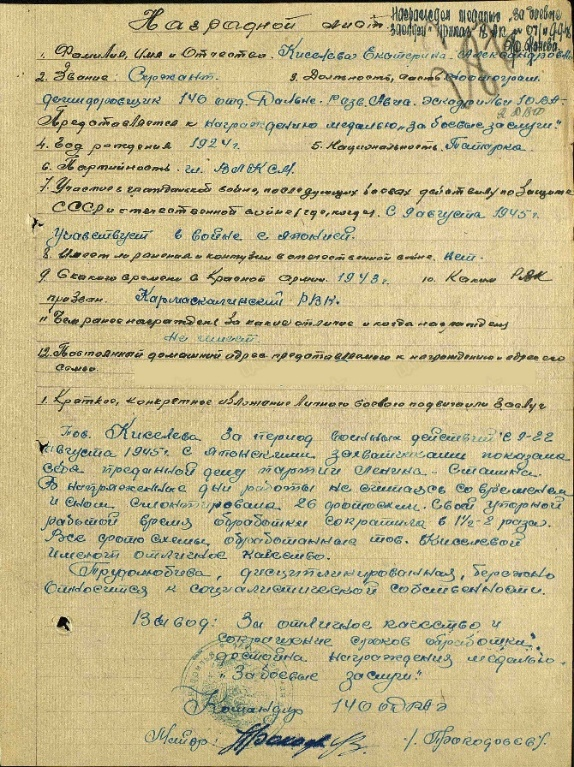 Наградной лист
Награжден медалью „за боевые
заслуги" Приказ
1. Фамилия, Имя и Отчество Киселева Екатерина Александровна
2. Звание: Сержант. 3. Должность, часть Фотограм.
дешифровщик 140 отд. Дальне. Разв. Авиа. Эскадрильи 10 ВА
Представляется к награждению медалью „За боевые заслуги".
4. Год рождения 1924 г. 5. Национальность Татарка.
6. Партийность чл. ВЛКСМ.
7. Участие в гражданской войне, последующих боевых действиях по защите
СССР и отечественной войне (где, когда) С 9 августа 1945 г.
Участвует в войне с Японией.
8. Имеет ли ранения и контузии в отечественной войне. нет.
9. С какого времени в Красной Армии. 1943 г. 10. Каким РВК
призван. Кармаскалинский РВК.
11. Чем ранее награжден за какие отличие и когда награжден
Не имеет
12. Постоянный домашний адрес представляемого к награждению и адрес его
семьи
1. Краткое, конкретное изложение личного боевого подвига или заслуг
Тов. Киселева за период военных действий с 9-22
августа 1945 г. с Японскими захватчиками показала
себя преданной делу партии Ленина-Сталина.
В напряженные дни работы не считаясь со временем
и сном смонтировала 26 фотосхем. Свой упорной
работой время обработки сократила в 1½-2 раза.
Все фотосхемы, обработанные тов. Киселевой
имеют отличное качество.
Трудолюбива, дисциплинированная, бережно
относится к социалистической собственности.
Вывод: За отличное качество и
сокращение сроков обработки
достойна награждения медалью
„За боевые заслуги".
Командир 140 ОДРАЭ
Майор: